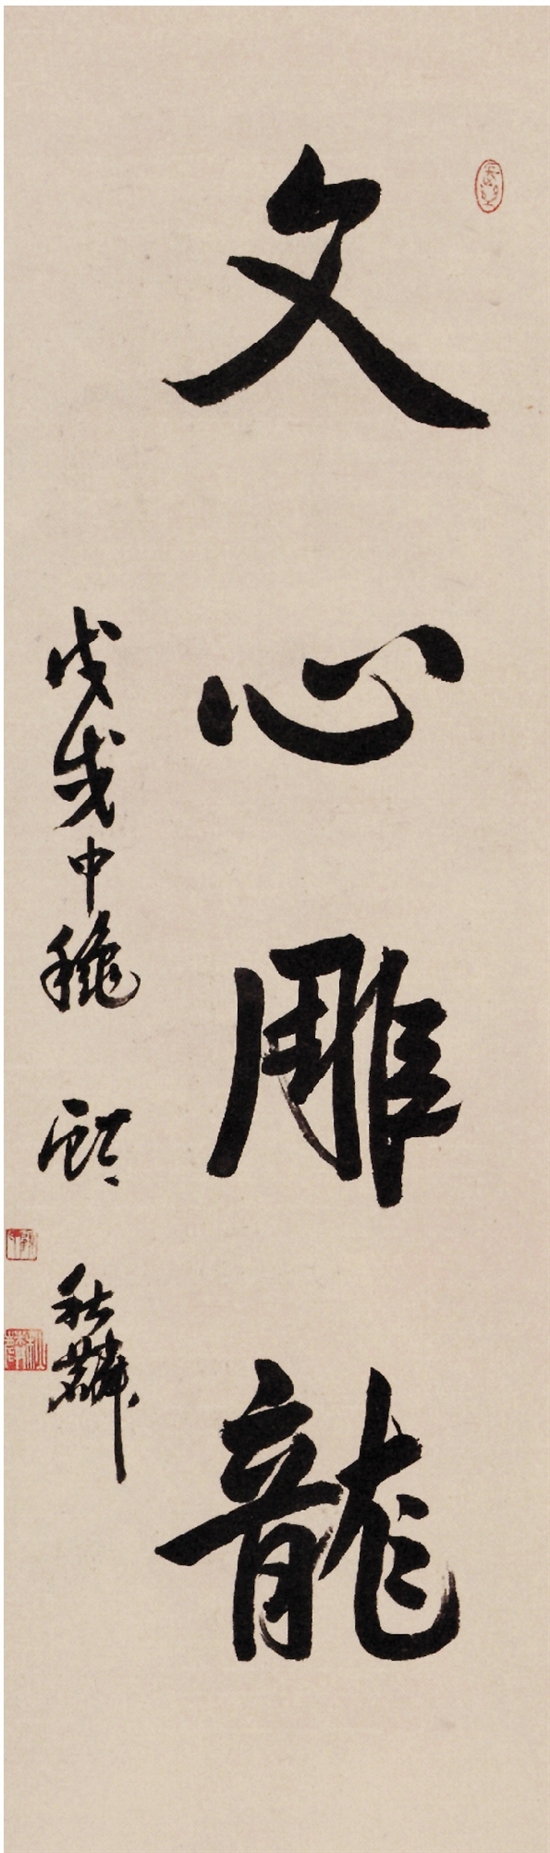 文心雕龍
戊戌中秋
秋麟